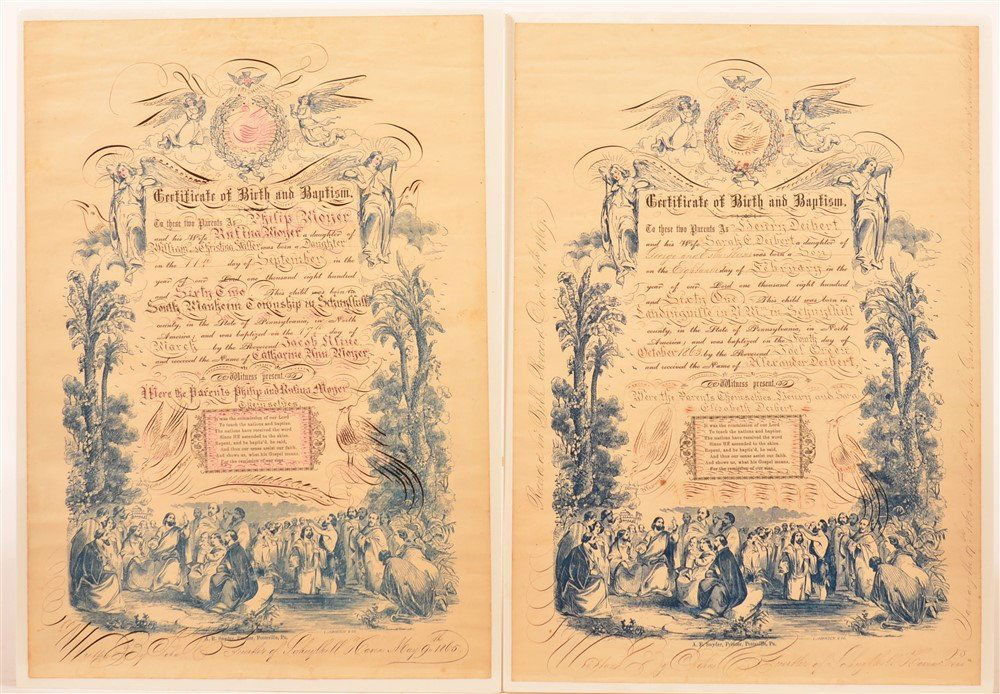 Certificate of Birth and Baptism.
To these two Parents As Philip Moyer
and his Wife Rufina Moyer a daughter of
William & Christina Miller was born a Daughter
on the 11th day of September in the
year of our Lord one thousand eight hundred
and Sixty Two This child was born in
South Manheim Township in Schuylkill
county, in the State of Pennsylvania, in North
America; and was baptized on the day of
March by the Reverend Jacob Kline
and received the Name of Catharine Ann Moyer
Witness present
Were the Parents Philip and Rufina Moyer
Themselves
It was the commission of our Lord
To teach the nations and baptize
The nations have received the word
Since HE ascended to the skies.
Repent, and be baptiz'd, he said,
And thus our sense assist our faith.
And shows us, what his Gospel means.
For the remission of our sins.
A. E. Snyder, Printer, Pottsville, Pa.
By John of Schuylkill Haven May 9th 1865
Certificate of Birth and Baptism.
To these two Parents As Henry Deibert
and his Wife Sarah E. Deibert a daughter of
George and was born a Son
on the day of February in the
year of our Lord one thousand eight hundred
and Sixty One This child was born in
Landingville in N.M. in Schuylkill
county, in the State of Pennsylvania, in North
America; and was baptized on the Fourth day of
October 1863 by the Reverend
and received the Name of Alexander Deibert
Witness present
Were the Parents Themselves Henry and Sara
Elizabeth Deibert
It was the commission of our Lord
To teach the nations and baptize.
The nations have received the word
Since HE ascended to the skies.
Repent, and be baptiz'd, he said,
And thus our sense assist our faith.
And shows us, what his Gospel means.
For the remission of our sins.
A. E. Snyder, Printer, Pottsville, Pa.
By John of Schuylkill Haven